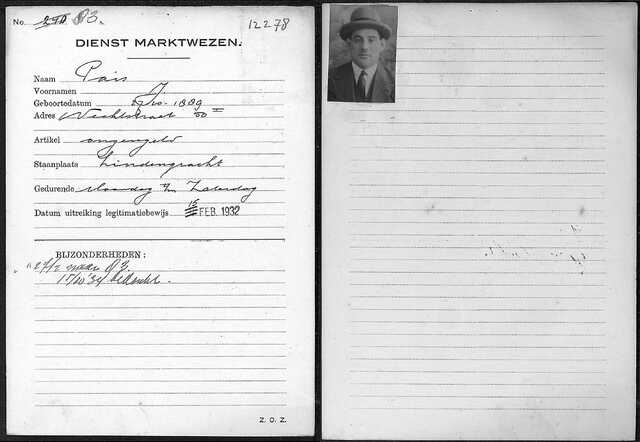 No. 83. 12278
DIENST MARKTWEZEN.
Naam Pais
Voornamen J.
Geboortedatum 1889
Adres Vechtstraat 60 III
Artikel ongeregeld
Staanplaats Lindengracht
Gedurende Maandag t/m Zaterdag
Datum uitreiking legitimatiebewijs 15 FEB. 1932
BIJZONDERHEDEN:
27/2 naar 83.
17/10 '34
Z. O. Z.